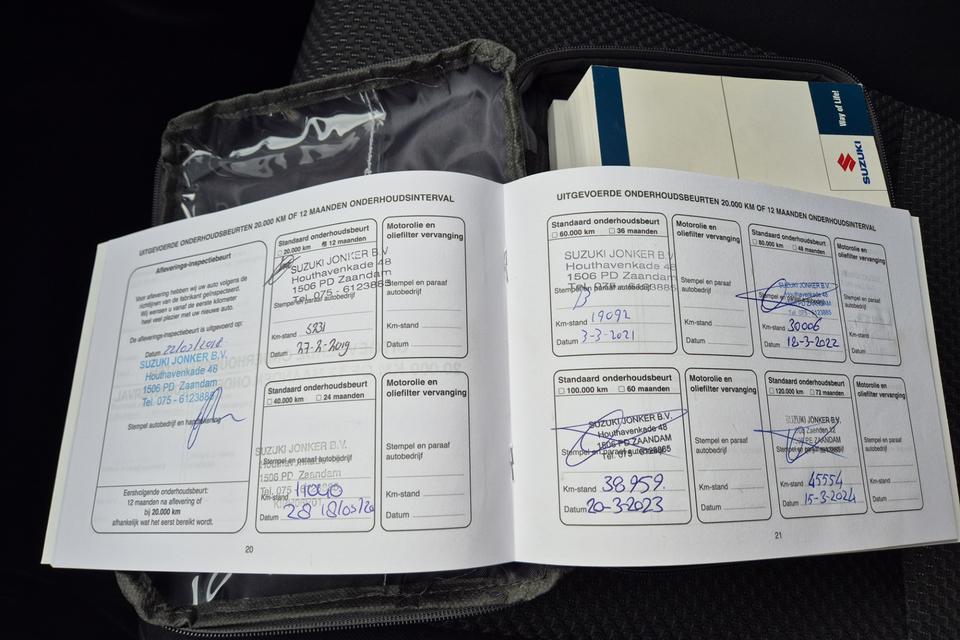 Way of Life!
SUZUKI
UITGEVOERDE ONDERHOUDSBEURTEN 20.000 KM OF 12 MAANDEN ONDERHOUDSINTERVAL
Afleverings-inspectiebeurt
Voor aflevering hebben wij uw auto volgens de
richtlijnen van de fabrikant geïnspecteerd.
Wij wensen u vanaf de eerste kilometer
heel veel plezier met uw nieuwe auto.
De afleverings-inspectiebeurt is uitgevoerd op:
Datum 22/02/2018
SUZUKI JONKER B.V.
Houthavenkade 48
1506 PD Zaandam
Tel. 075 - 6123885
Stempel autobedrijf en
Eerstvolgende onderhoudsbeurt:
12 maanden na aflevering of
bij 20.000 km
afhankelijk wat het eerst bereikt wordt.
Standaard onderhoudsbeurt
20.000 km 12 maanden
SUZUKI JONKER B.V.
Houthavenkade 48
1506 PD Zaandam
Tel. 075 - 6123885
Stempel en paraaf autobedrijf
Km-stand 5231
Datum 27-2-2019
Motorolie en
oliefilter vervanging
Stempel en paraaf
autobedrijf
Km-stand
Datum
Standaard onderhoudsbeurt
40.000 km 24 maanden
SUZUKI JONKER B.V.
Stempel en paraaf autobedrijf
1506 PD Zaandam
Km-stand
Datum
Motorolie en
oliefilter vervanging
Stempel en paraaf
autobedrijf
Km-stand
Datum
20
UITGEVOERDE ONDERHOUDSBEURTEN 20.000 KM OF 12 MAANDEN ONDERHOUDSINTERVAL
Standaard onderhoudsbeurt
60.000 km 36 maanden
SUZUKI JONKER B.V.
Houthavenkade 48
1506 PD Zaandam
Tel. 075 - 6123885
Stempel en paraaf autobedrijf
Km-stand 19092
Datum 3-3-2021
Motorolie en
oliefilter vervanging
Stempel en paraaf
autobedrijf
Km-stand
Datum
Standaard onderhoudsbeurt
80.000 km 48 maanden
SUZUKI JONKER B.V.
Stempel en paraaf autobedrijf
Tel. 075 - 6123885
Km-stand 30006
Datum 18-3-2022
Motorolie en
oliefilter vervanging
Stempel en paraaf
autobedrijf
Km-stand
Datum
Standaard onderhoudsbeurt
100.000 km 60 maanden
SUZUKI JONKER B.V.
Houthavenkade 48
1506 PD ZAANDAM
Stempel en paraaf autobedrijf
Tel. 075 - 6123885
Km-stand 38.959
Datum 20-3-2023
Motorolie en
oliefilter vervanging
Stempel en paraaf
autobedrijf
Km-stand
Datum
Standaard onderhoudsbeurt
120.000 km 72 maanden
SUZUKI JONKER B.V.
ZAANDAM
Stempel en paraaf autobedrijf
Km-stand 45554
Datum 15-3-2024
Motorolie en
oliefilter vervanging
Stempel en paraaf
autobedrijf
Km-stand
Datum
21